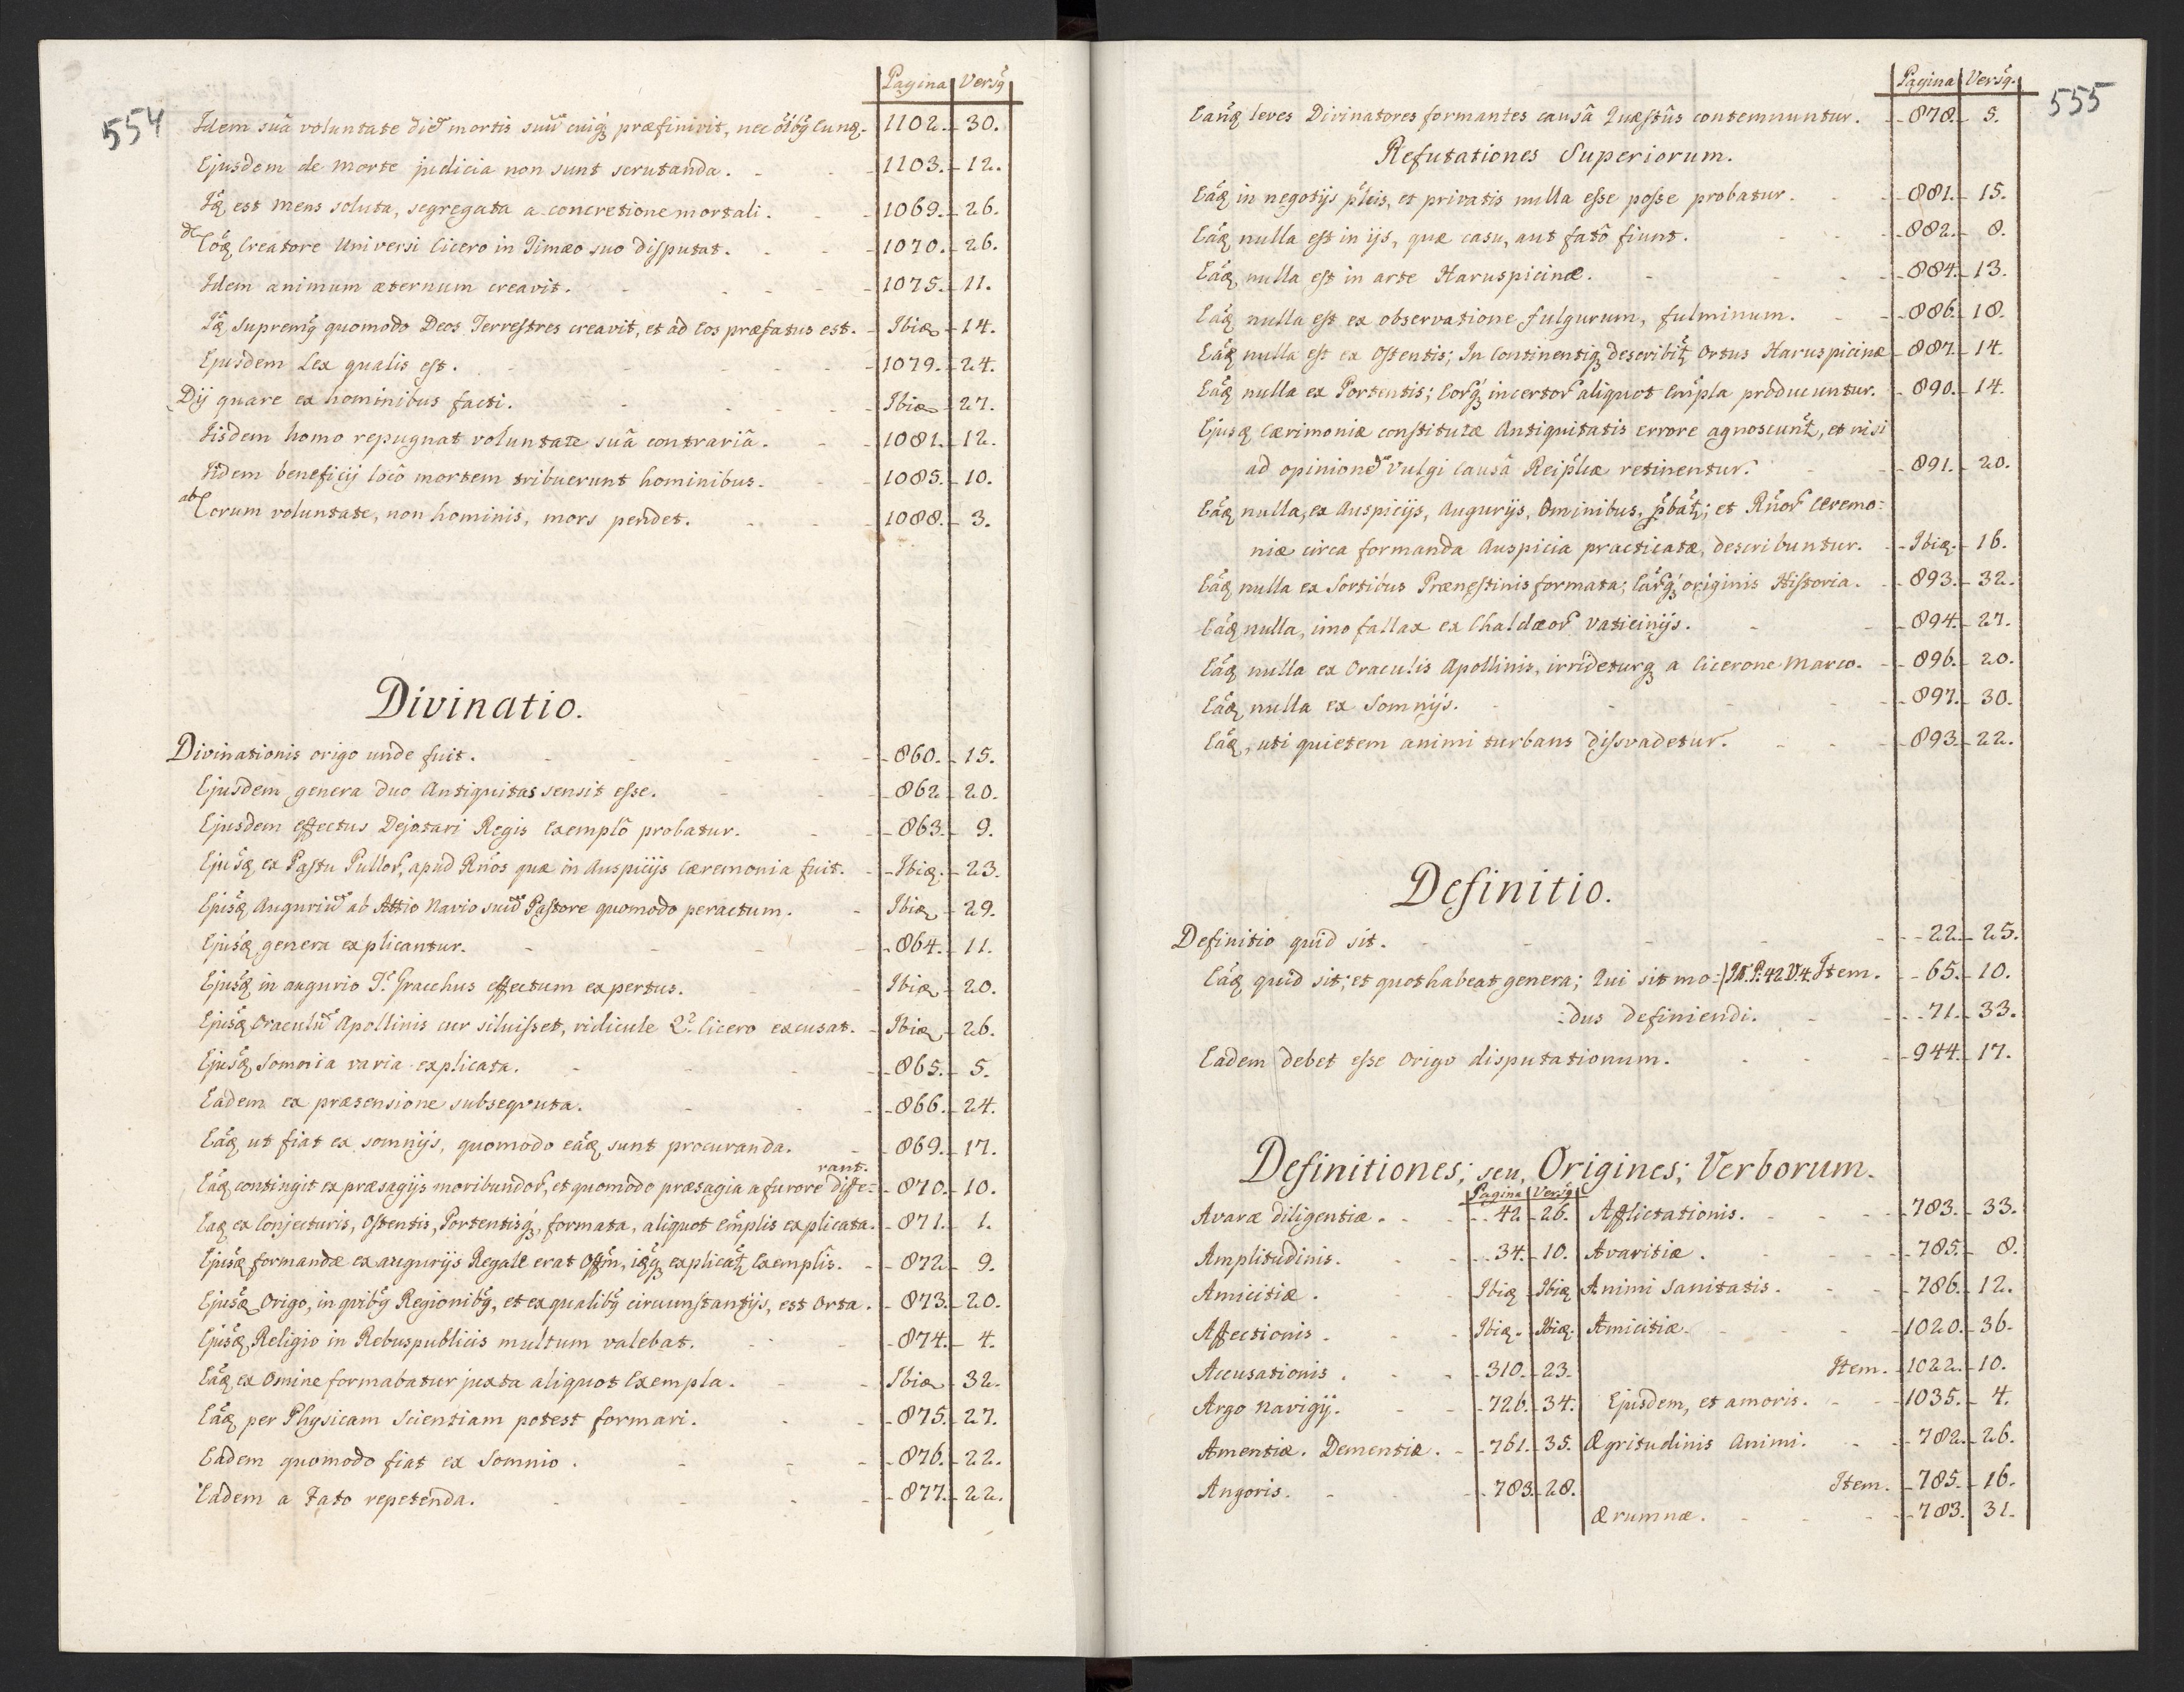 554
Pagina Versq
Idem suâ voluntate diem mortis suum cuiq præfinivit, nec oîbq eunq. 1102. 30.
Ejusdem de morte judicia non sunt scrutanda. 1103. 12.
Iq est mens soluta, segregata a concretione mortali. 1069. 26.
de Eoq Creatore Universi Cicero in Timæo suo disputat. 1070. 26.
Idem animum æternum creavit. 1075. 11.
Iq supremq quomodo Deos Terrestres creavit, et ad Eos præfatus est. Ibiq 14.
Ejusdem Lex qualis est. 1079. 24.
Dij quare ex hominibus facti. Ibiq 27.
Iisdem homo repugnat voluntate suâ contrariâ. 1081. 12.
Iidem beneficij locô mortem tribuerunt hominibus. 1085. 10.
ab Eorum voluntate, non hominis, mors pendet. 1088. 3.
Divinatio.
Divinationis origo unde fuit. 860. 15.
Ejusdem genera duo Antiquitas sensit esse. 862 20.
Ejusdem effectus Dejotari Regis Exemplô probatur. 863. 9.
Ejusq ex Pastu Pullor, apud Rños quæ in Auspicijs cæremonia fuit. Ibiq. 23.
Ejusq Augurium ab Attio Navio suum Pastore quomodo peractum. Ibiq 29.
Ejusq genera explicantur. 864. 11.
Ejusq in augurio T. Gracchus effectum expertus. Ibiq 20.
Ejusq Oraculum Apollinis cur siluisset, ridicule Q. Cicero excusat. Ibiq 26.
Ejusq Somnia varia explicata. 865. 5.
Eadem ex præsensione subsequuta. 866. 24.
Eaq ut fiat ex somnijs, quomodo eaq sunt procuranda. 869. 17.
rant.
Eaq contingit ex præsagijs moribundor, et quomodo præsagia a furore diffe= 870. 10.
Eaq ex Conjecturis, Ostentis, Portentisq, formata, aliquot emplis explicata. 871. 1.
Ejusq formandæ ex augurijs Regale erat Offm, iqq explicat Exemplis. 872 9.
Ejusq Origo, in quibq Regionibq, et ex qualibq circumstantijs, est Orta. 873. 20.
Ejusq Religio in Rebuspublicis multum valebat. 874. 4.
Eaq ex Omine formabatur juxta aliquot Exempla. Ibiq 32.
Eaq per Physicam Scientiam potest formari. 875. 27.
Eadem quomodo fiat ex Somnio. 876. 22.
Eadem a Fato repetenda. 877. 22.
555
Pagina Versq.
Eanq leves Divinatores formantes causâ Quæstûs contemnuntur. 878. 5.
Refutationes Superiorum.
Eaq in negotijs plcis, et privatis nulla esse posse probatur. 881. 15.
Eaq nulla est in ijs, quæ casu, aut fatô fiunt. 882. 8.
Eaq nulla est in arte Haruspicinæ. 884. 13.
Eaq nulla est ex observatione fulgurum, fulminum. 886. 18.
Eaq nulla est ex Ostentis; In Continentiq describit Ortus Haruspicinæ 887. 14.
Eaq nulla ex Portentis; Eorq incertor aliquot Empla producuntur. 890. 14.
Ejusq Cærimoniæ constitutæ Antiquitatis errore agnoscunt, et nisi
ad opinionem Vulgi Causâ Reiplcæ retinentur. 891. 20.
Eaq nulla, ex Auspicijs, Augurijs, Ominibus, pbat; et Rñor Ceremo=
niæ circa formanda Auspicia practicatæ, describuntur. Ibiq. 16.
Eaq nulla ex Sortibus Prænestinis formata; Earq originis Historia. 893. 32.
Eaq nulla, imo fallax ex Chaldæor Vaticinijs. 894. 27.
Eaq nulla ex Oraculis Apollinis, irrideturq a Cicerone Marco. 896. 20.
Eaq nulla ex Somnijs. 897. 30.
Eaq, uti quietem animi turbans dissvadetur. 893. 22.
Definitio.
Definitio quid sit. 22. 25.
Eaq quid sit; et quot habeat genera; Qui sit mo= It. P. 42 V. 4. Item. 65. 10.
=dus definiendi. 71. 33.
Eadem debet esse Origo disputationum. 944. 17.
Definitiones; seu, Origines; Verborum.
Pagina Versq
Avaræ diligentiæ. 42 26. Afflictationis. 783. 33.
Amplitudinis. 34. 10. Avaritiæ. 785. 8.
Amicitiæ. Ibiq Ibiq Animi Sanitatis. 786. 12.
Affectionis. Ibiq. Ibiq. Amicitiæ. 1020. 36.
Accusationis. 310. 23. Item. 1022. 10.
Argo navigij. 726. 34. Ejusdem, et amoris. 1035. 4.
Amentiæ. Dementiæ. 761. 35. Ægritudinis Animi. 782. 26.
Angoris. 783. 28. Item. 785. 16.
Ærumnæ. 783. 31.